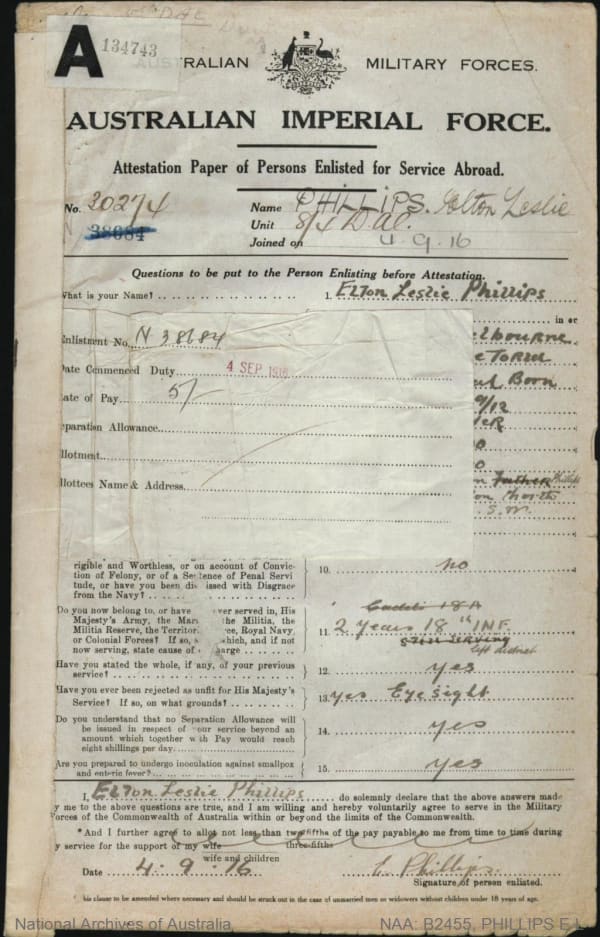 A 134743
AUSTRALIAN MILITARY FORCES.
AUSTRALIAN IMPERIAL FORCE.
Attestation Paper of Persons Enlisted for Service Abroad.
No. 30274 Name PHILLIPS. Elton Leslie
38684 Unit 8/4 D.A.C.
Joined on 4.9.16
Questions to be put to the Person Enlisting before Attestation.
What is your Name? 1. Elton Leslie Phillips
in or
Enlistment No. N 38684 elbourne
Date Commenced Duty 4 SEP 1916
ate of Pay 5/- Born
eparation Allowance
llotment
llottees Name & Address Father Phillips
North
S.W.
rigible and Worthless, or on account of Convic-
tion of Felony, or of a Sentence of Penal Servi
tude, or have you been dismissed with Disgrace
from the Navy? 10. no
Do you now belong to, or have ever served in, His
Majesty's Army, the Mar the Militia, the
Militia Reserve, the Territor ce, Royal Navy
or Colonial Forces? If so, which, and if not
now serving, state cause of arge
Cadets 18A
11. 2 years 18th INF.
Still Serving
left district
Have you stated the whole, if any, of your previous
service? 12. yes
Have you ever been rejected as unfit for His Majesty's
Service? If so, on what grounds? 13. yes Eyesight
Do you understand that no Separation Allowance will
be issued in respect of your service beyond an
amount which together with Pay would reach
eight shillings per day 14. yes
Are you prepared to undergo inoculation against smallpox
and enteric fever? 15. yes
I, Elton Leslie Phillips do solemnly declare that the above answers made
y me to the above questions are true, and I am willing and hereby voluntarily agree to serve in the Military
Forces of the Commonwealth of Australia within or beyond the limits of the Commonwealth.
*And I further agree to allot not less than two-fifths of the pay payable to me from time to time during
three-fifths
y service for the support of my wife
wife and children
Date 4.9.16 E. Phillips
Signature of person enlisted.
his clause to be amended where necessary and should be struck out in the case of unmarried men or widowers without children under 18 years of age.
National Archives of Australia NAA: B2455, PHILLIPS E L